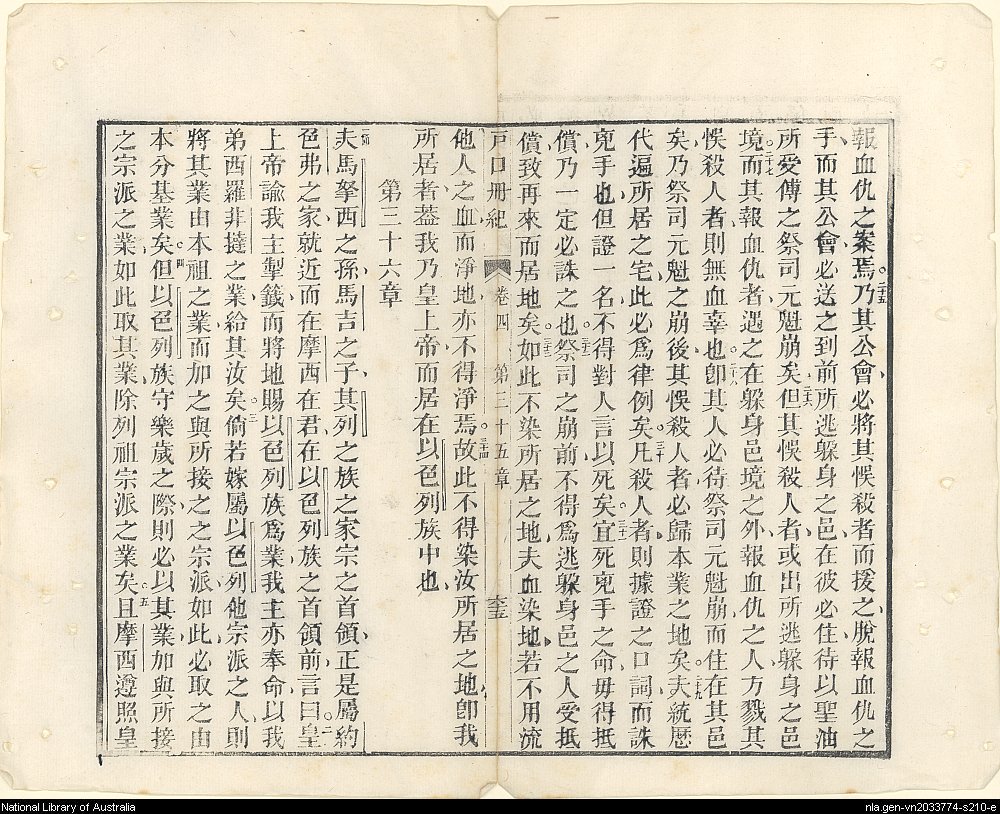 報血仇之案焉。二十五乃其公會必將其悞殺者而援之脫報血仇之
手而其公會必送之到前所逃躱身之邑在彼必住待以聖油
所受傅之祭司元魁崩矣。二十六但其悞殺人者或出所逃躱身之邑
境。二十七而其報血仇者遇之在躱身邑境之外報血仇之人方戮其
悞殺人者則無血辜也。二十八卽其人必待祭司元魁崩而住在其邑
矣乃祭司元魁之崩後其悞殺人者必歸本業之地矣。二十九夫統歷
代遍所居之宅此必爲律例矣。三十凡殺人者則據證之口詞而誅
兇手也但證一名不得對人言以死矣。三十一宜死兇手之命毋得抵
償乃一定必誅之也。三十二祭司之崩前不得爲逃躱身邑之人受抵
償致再來而居地矣。三十三如此不染所居之地夫血染地若不用流
戶口册紀 卷四 第三十五章 奎
他人之血而淨地亦不得淨焉。三十四故此不得染汝所居之地卽我
所居者葢我乃皇上帝而居在以色列族中也
第三十六章
夫馬拏西之孫馬吉之子其列之族之家宗之首領正是屬約
色弗之家就近而在摩西在君在以色列族之首領前言曰。二皇
上帝諭我主掣籤而將地賜以色列族爲業我主亦奉命以我
弟西羅非撻之業給其汝矣。三倘若嫁屬以色列他宗派之人則
將其業由本祖之業而加之與所接之之宗派如此必取之由
本分基業矣。四但以色列族守樂歲之際則必以其業加與所接
之宗派之業如此取其業除列祖宗派之業矣。五且摩西遵照皇
National Library of Australia
nla.gen-vn2033774-s210-e